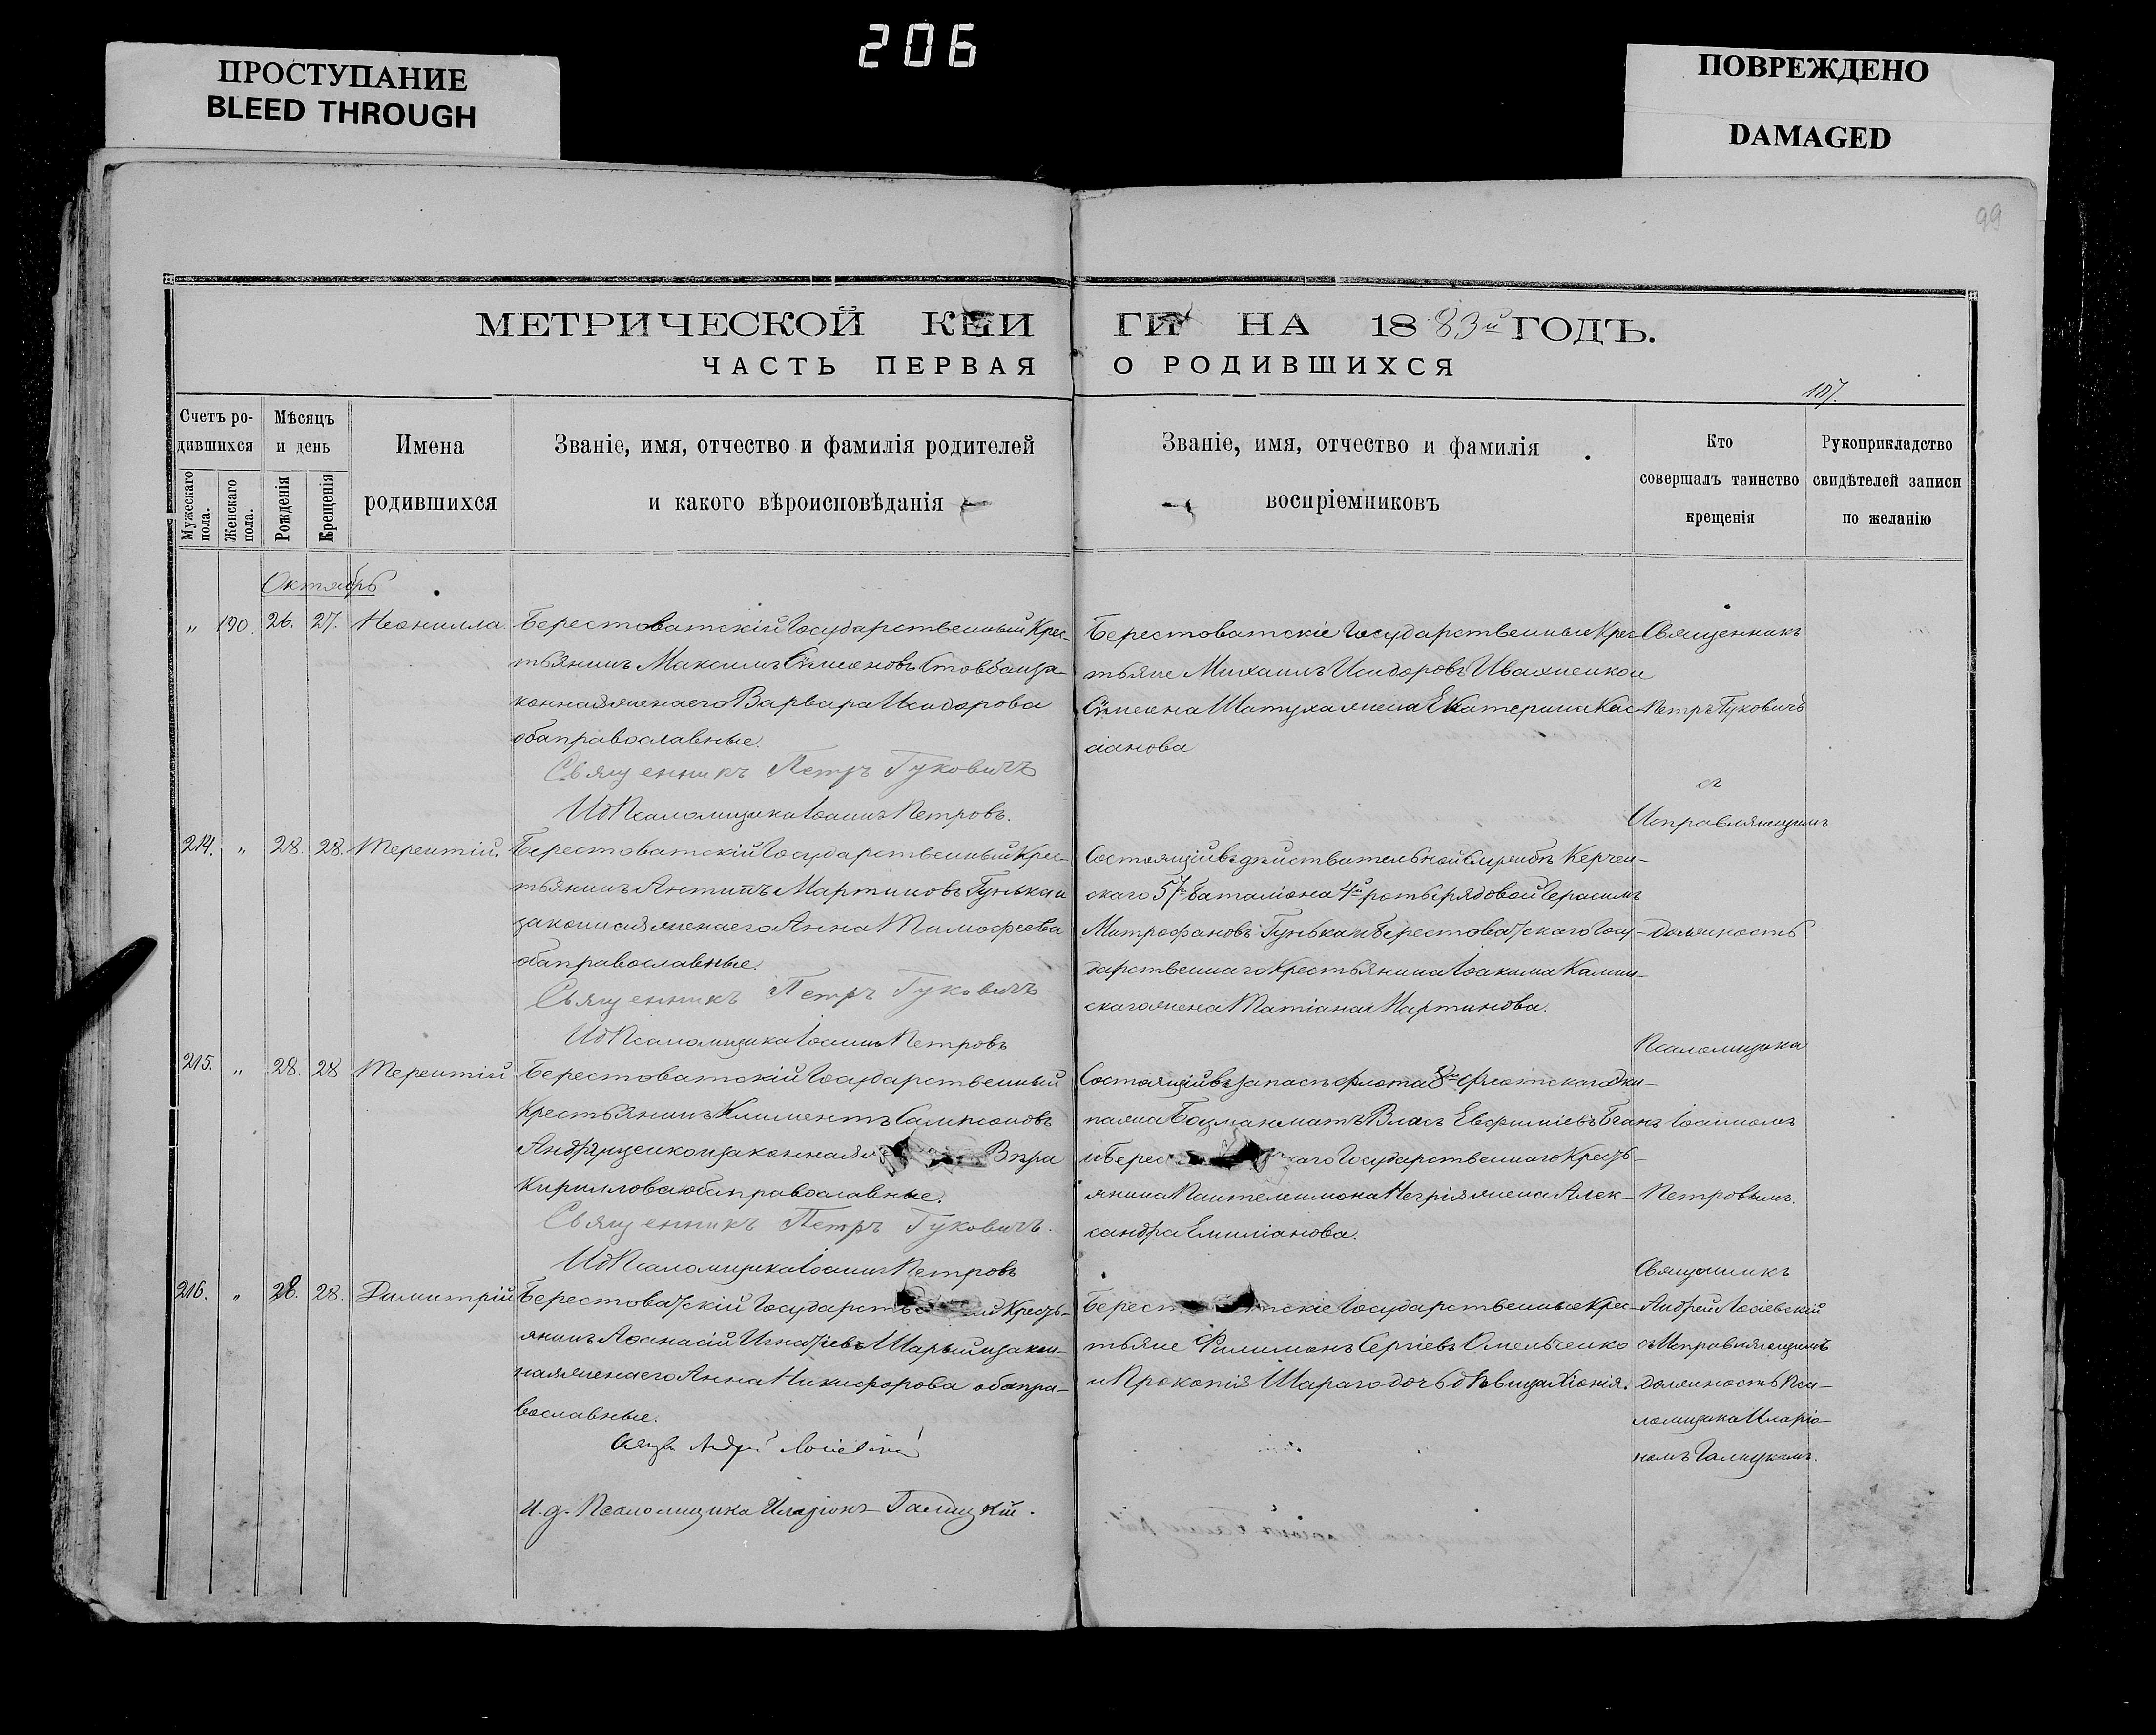 206
ПРОСТУПАНИЕ
BLEED THROUGH
ПОВРЕЖДЕНО
DAMAGED
99
МЕТРИЧЕСКОЙ КНИГИ НА 1883й ГОДЪ.
ЧАСТЬ ПЕРВАЯ О РОДИВШИХСЯ
107.
Счетъ ро-
дившихся
Мужескаго пола.
Женскаго пола.
Мѣсяцъ
и день
Рожденія
Крещенія
Имена
родившихся
Званіе, имя, отчество и фамилія родителей
и какого вѣроисповѣданія
Званіе, имя, отчество и фамилія
воспріемниковъ
Кто
совершалъ таинство
крещенія
Рукоприкладство
свидѣтелей записи
по желанію
Октябрь
„ 190. 26. 27. Неонилла
Берестоватскій Государственный Крес-
тьянинъ Максимъ Сѵмеоновъ и за-
конная жена его Варвара Исидорова
оба православные.
Священникъ Петръ Гуковичъ
Ид Псаломщика Іоаннъ Петровъ.
Берестоватскіе Государственные Крес-
тьяне Михаилъ Исидоровъ Ивахненко и
Сѵмеона Шатуха жена Екатерина Кас-
сіанова
Священникъ
Петръ Гуковичъ
съ
Исправляющимъ
214. „ 28. 28. Терентій.
Берестоватскій Государственный Крес-
тьянинъ Антипъ Мартиновъ Гунька и
законная жена его Анна Тимофеева
оба православные.
Священникъ Петръ Гуковичъ
Ид Псаломщика Іоаннъ Петровъ
Состоящій въ дѣйствительной службѣ Керчен-
скаго 57го баталіона 4й роты рядовой Герасимъ
Митрофановъ Гунька и Берестоватскаго Госу-
дарственнаго Крестьянина Іоакима Калин-
скаго жена Татіана Мартинова.
должность
Псаломщика
215. „ 28. 28 Терентій
Берестоватскій Государственный
Крестьянинъ Климентъ Сампсоновъ
Андрущенко и законная Вѣра
Кириллова оба православные.
Священникъ Петръ Гуковичъ.
Ид Псаломщика Іоаннъ Петровъ
Состоящій въ запасѣ флота 8го флотскаго эки-
пажа Боцманматъ Власъ Евфиміевъ
и Берес скаго Государственнаго Кресть-
янина Пантелеимона Негрія жена Алек-
сандра Емиліанова.
Іоанномъ
Петровымъ.
216. „ 28. 28. Димитрій
Берестоватскій Государств Кресть-
янинъ Аѳанасій Игнатіевъ Шарый и закон-
ная жена его Анна Никифорова оба пра-
вославные.
и.д. Псаломщика Иларіонъ Галицкій.
Берест тскіе Государственные Крес-
тьяне Филимонъ Сергіевъ Омельченко
и Прокопія Шараго дочь дѣвица Хіонія.
Священникъ
Андрей Лосіевскій
съ Исправляющимъ
должность Пса-
ломщика Иларіо-
номъ Галицкимъ.